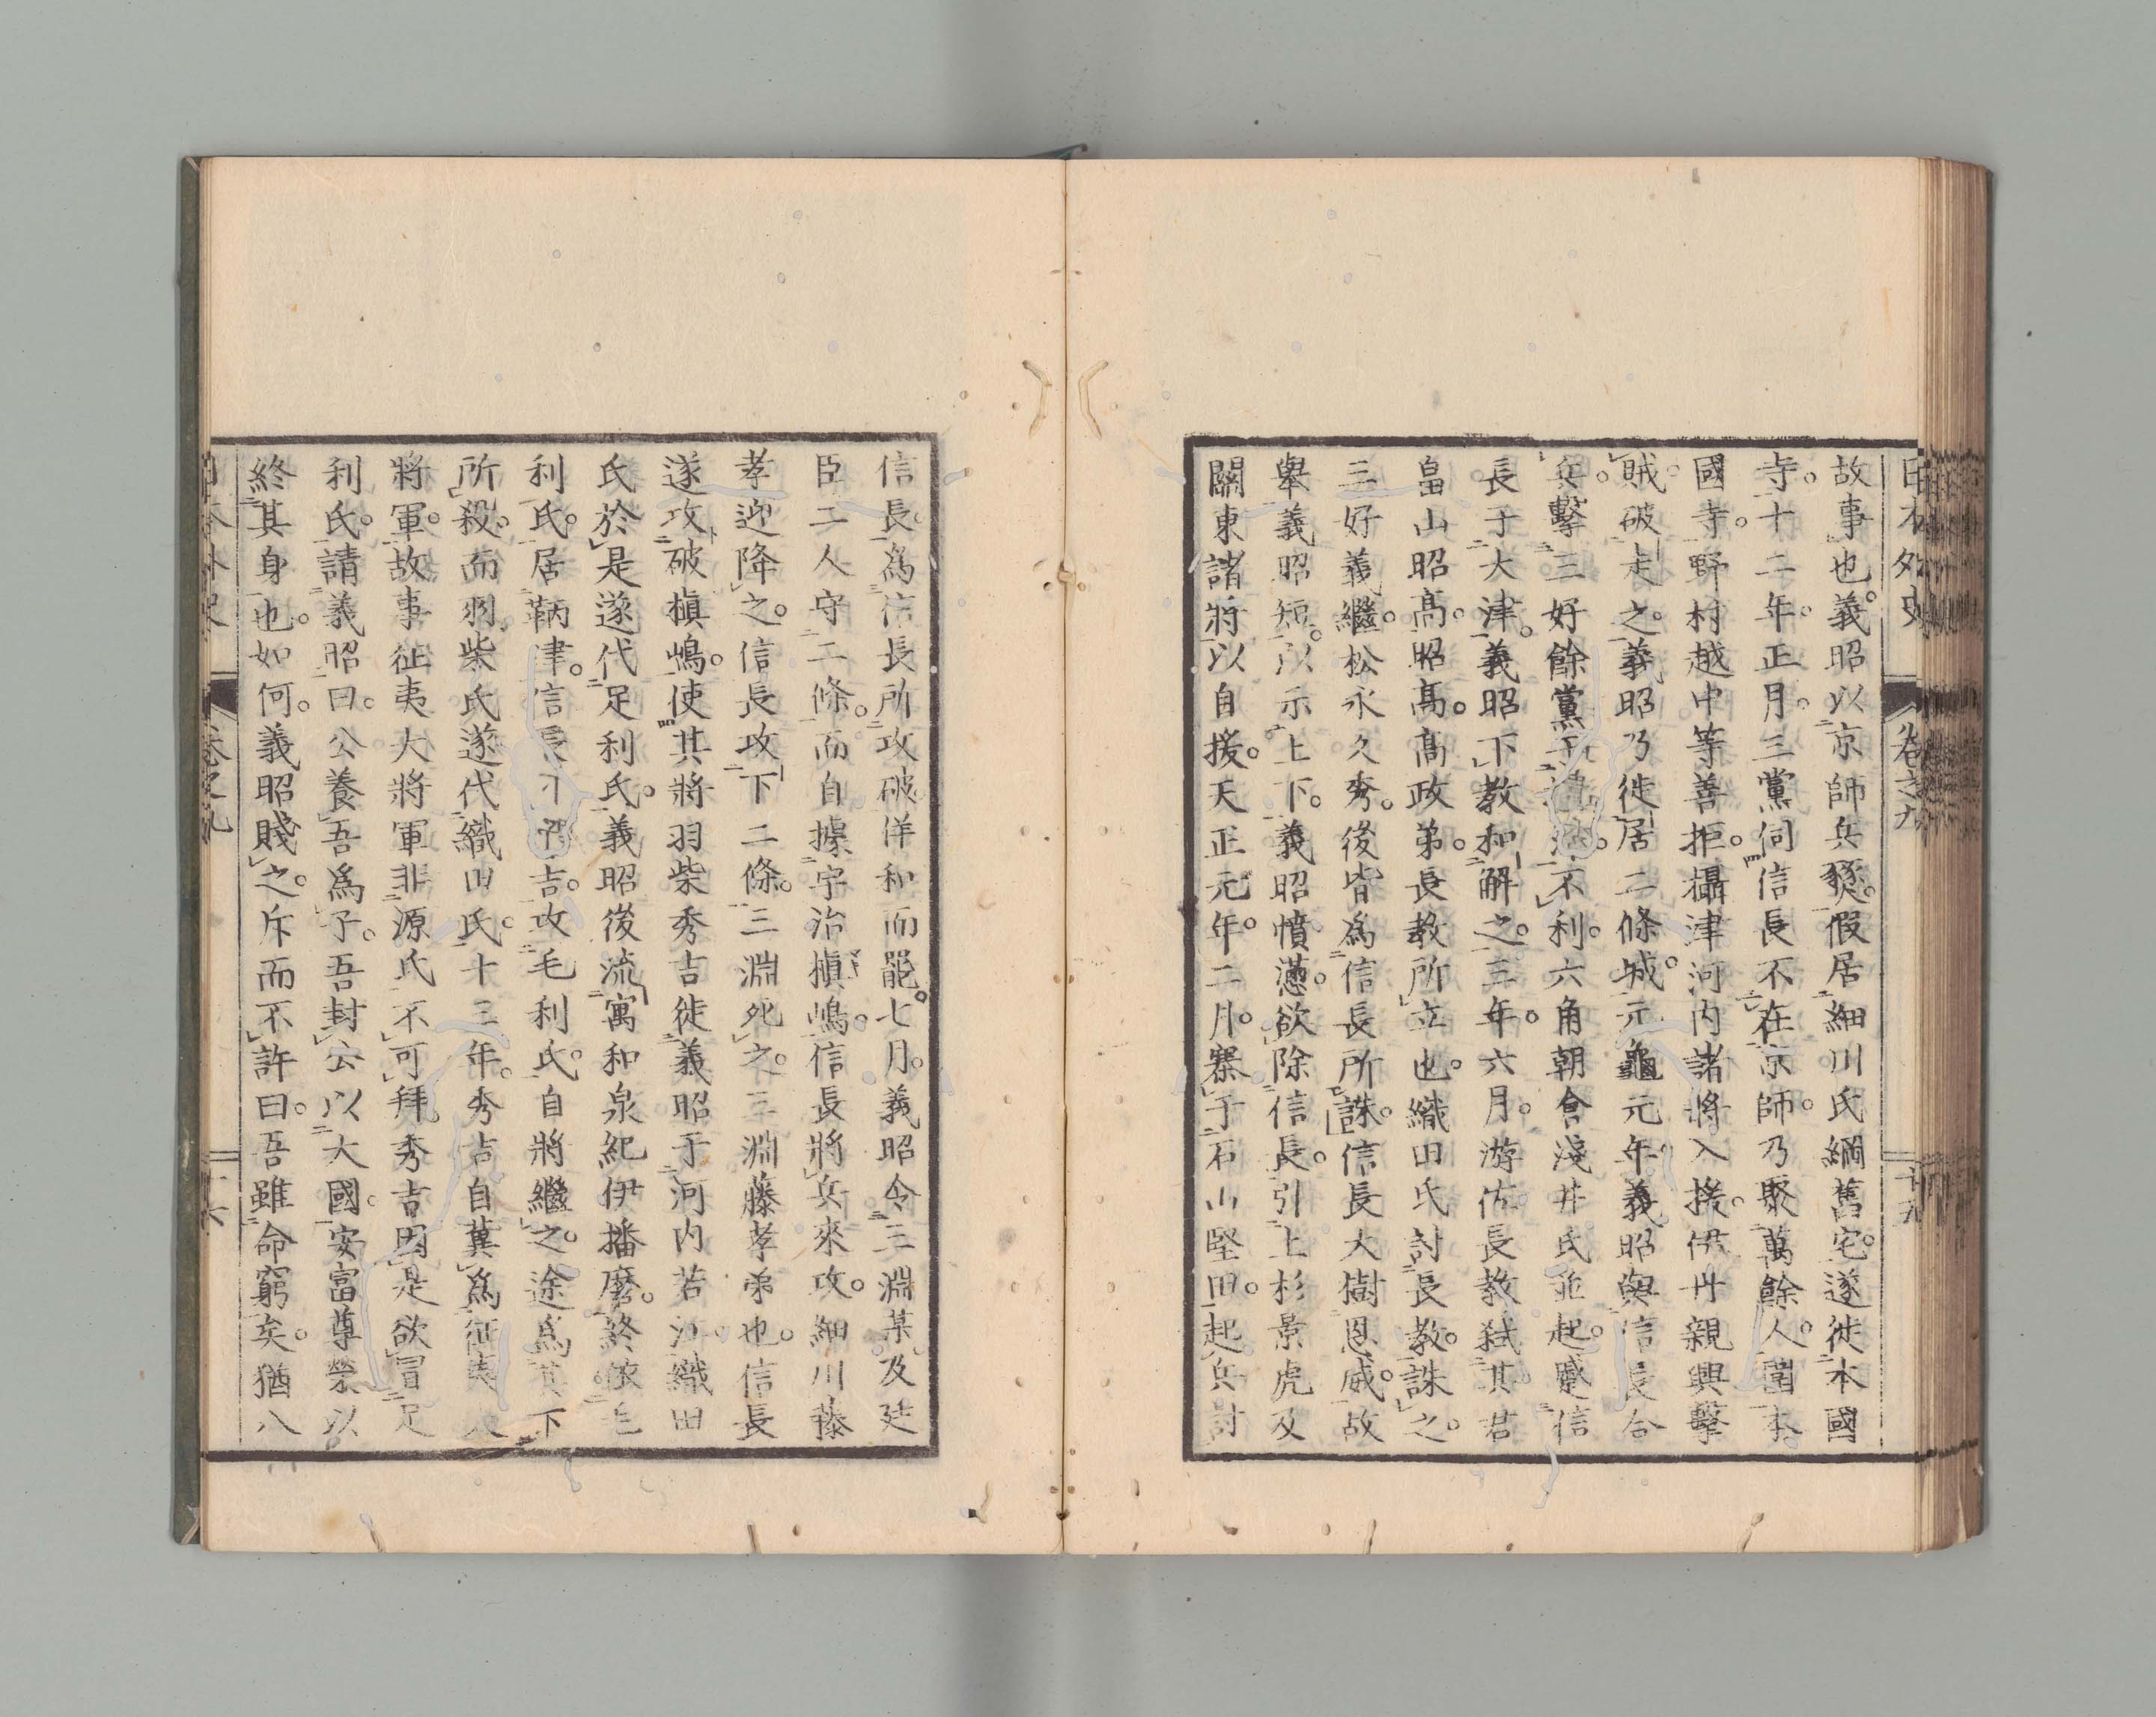 日本外史 卷之九 十五
故事也。義昭以京師兵燹。假居細川氏綱舊宅。遂徙本國
寺。十二年。正月。三黨伺信長不在京師。乃聚萬餘人。圍本
國寺。野村越中等善拒。攝津河內諸將入援。伊丹親興擊
賊。破走之。義昭乃徙居二條城。元龜元年。義昭與信長合
兵擊三好餘黨于不利。六角朝倉淺井氏並起。蹙信
長于大津。義昭下教和解之。三年。六月。游佐長教弒其君
畠山昭高。昭高。高政弟。長教所立也。織田氏討長教。誅之。
三好義繼。松永久秀。後皆爲信長所誅。信長大樹恩威。故
舉義昭短。以示上下。義昭憤懣。欲除信長。引上杉景虎及
關東諸將以自援。天正元年。二月。寨于石山堅田。起兵討
信長。爲信長所攻破。佯和而罷。七月。義昭令三淵某及廷
臣二人守二條。而自據宇治槇嶋。信長將兵來攻。細川藤
孝迎降之。信長攻下二條。三淵死之。三淵藤孝弟也。信長
遂攻破槇嶋。使其將羽柴秀吉徙義昭于河內若江。織田
氏於是遂代足利氏。義昭後流寓和泉紀伊播磨。終依毛
利氏。居鞆津。信長使秀吉。攻毛利氏。自將繼之。途爲其下
所殺。而羽柴氏遂代織田氏。十三年。秀吉自冀爲征夷大
將軍。故事征夷大將軍非源氏不可拜。秀吉因是欲冒足
利氏。請義昭曰。公養吾爲子。吾封公以大國。安富尊榮以
終其身也。如何。義昭賤之。斥而不許曰。吾雖命窮矣。猶八
日本外史 卷之九 十六